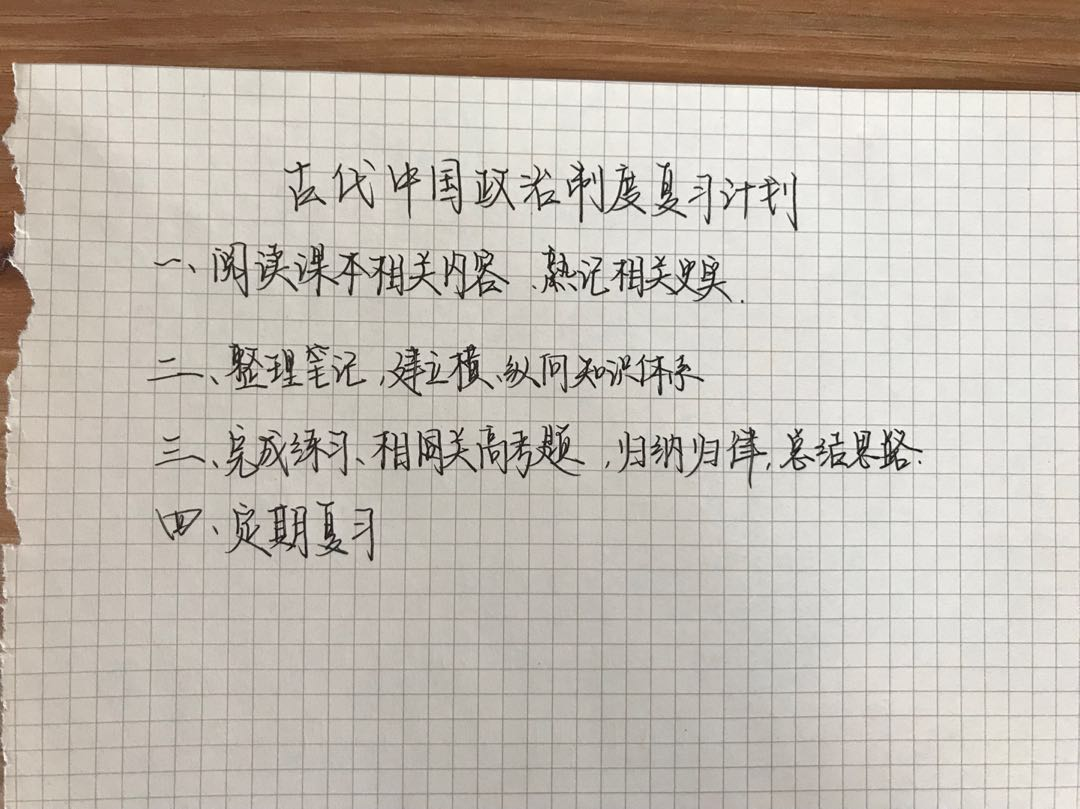 古代中国政治制度复习计划
一、阅读课本相关内容、熟记相关史实.
二、整理笔记,建立横、纵向知识体系
三、完成练习、相网关高考题,归纳归律,总结思路.
四、定期复习